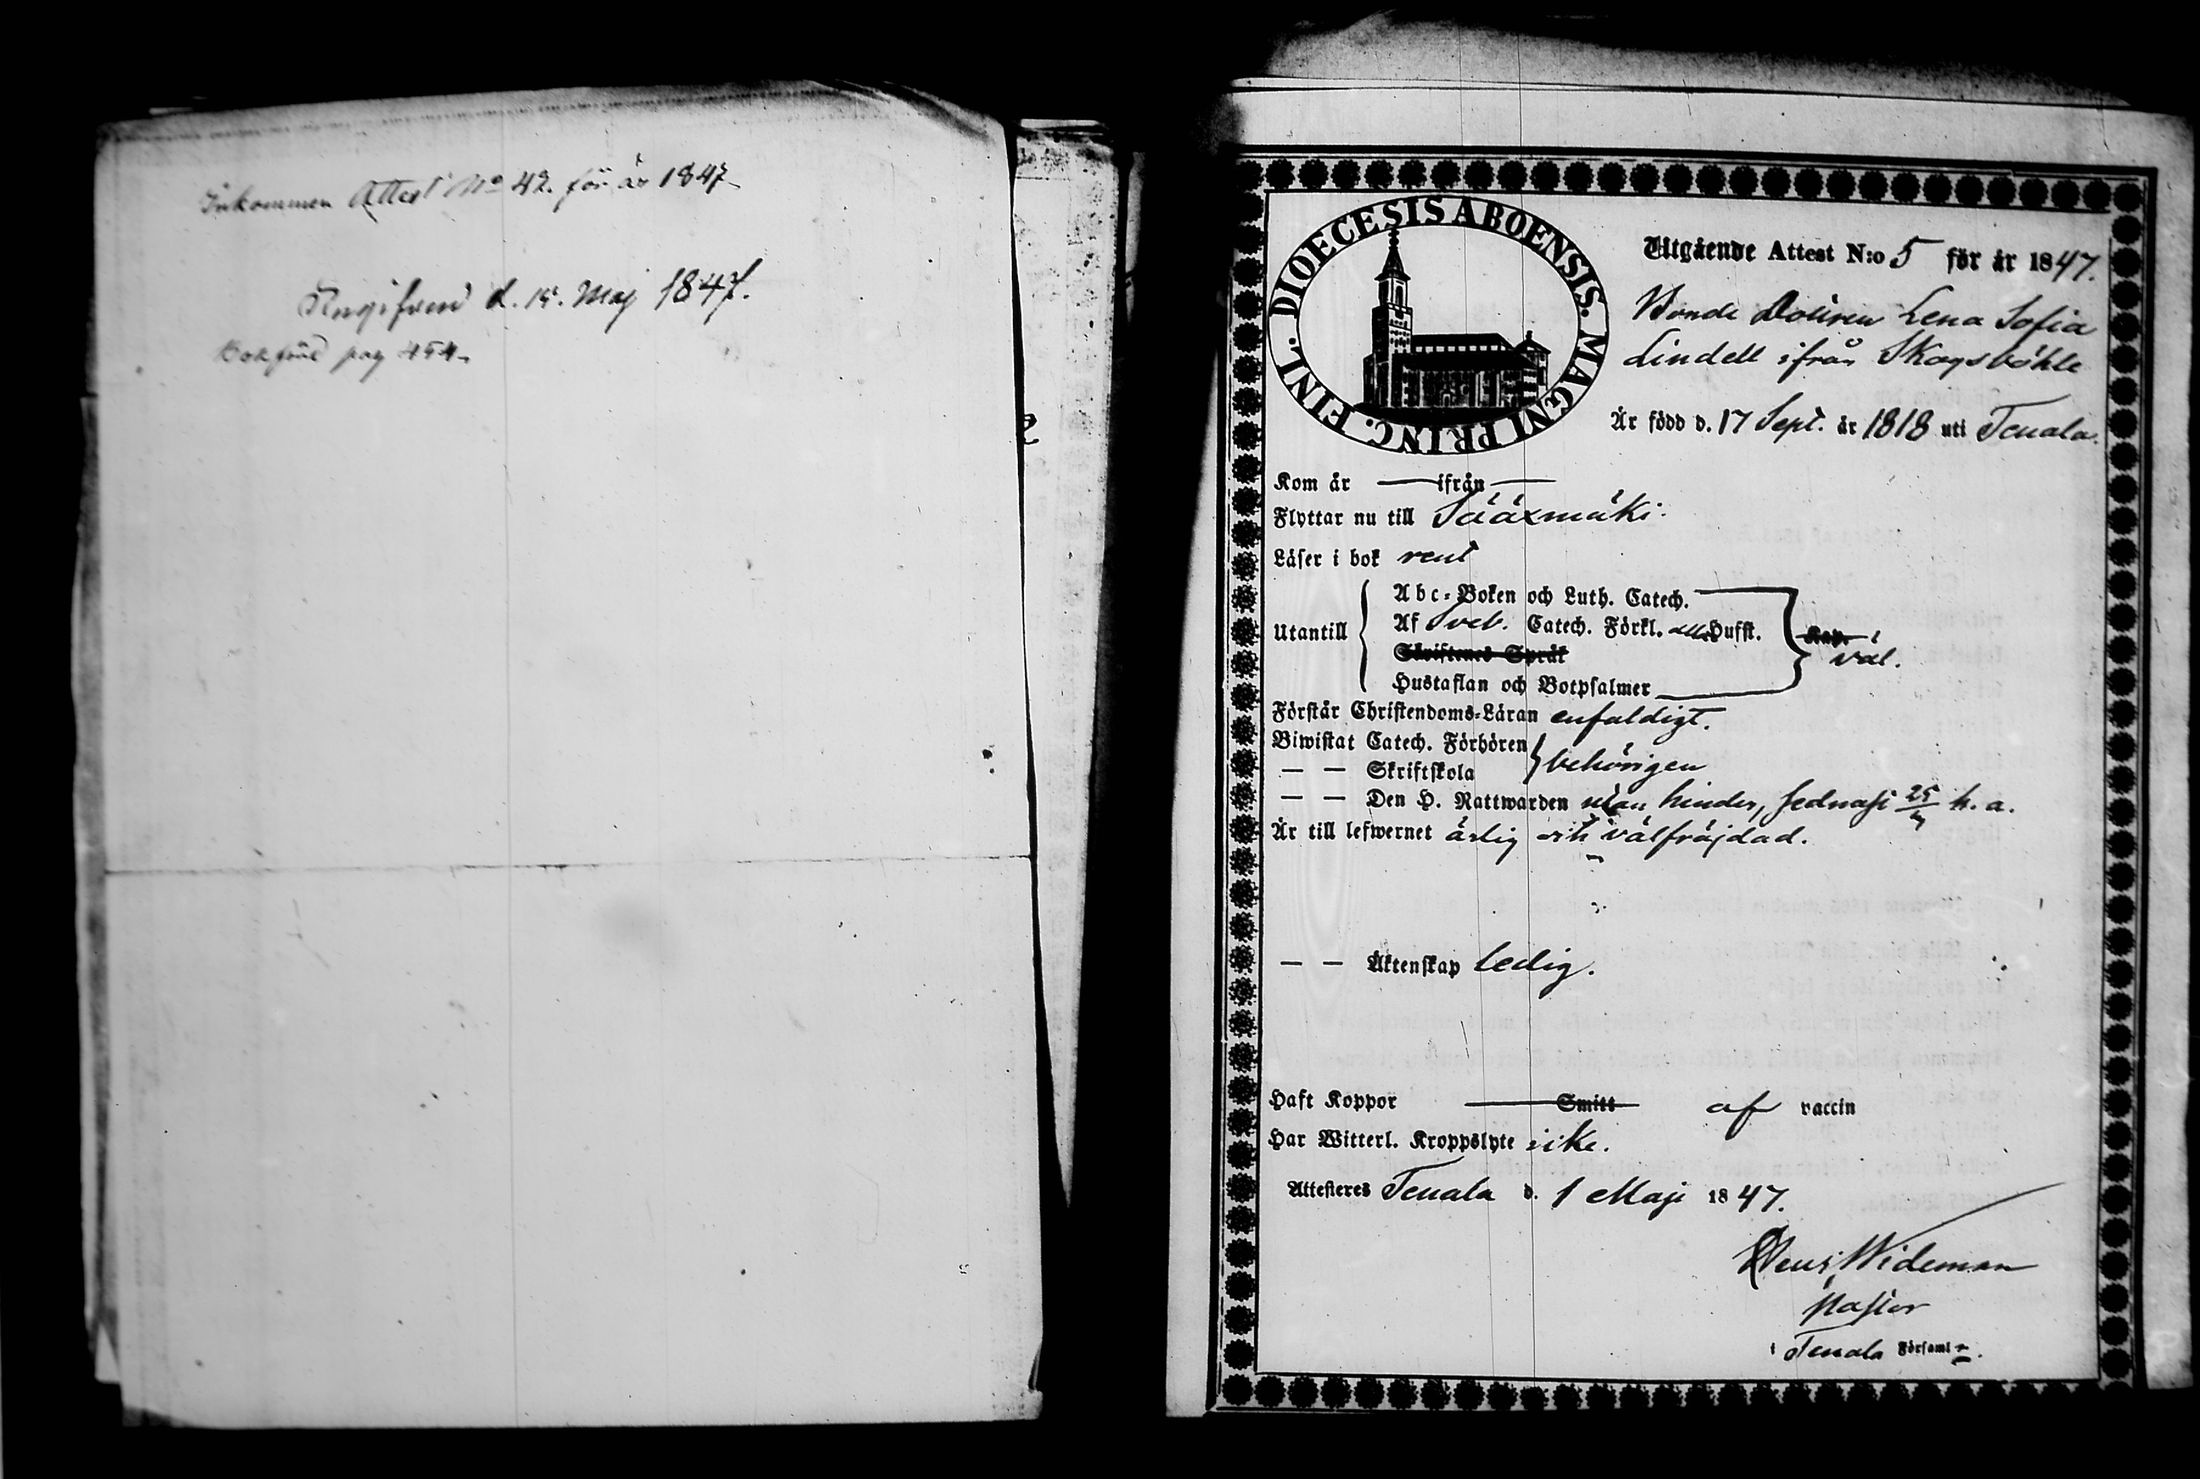 Inkommen Attest No 42. för år 1847
Angifven d. 15. Maj 1847.
Bokförd pag 454
DIOECESIS ABOENSIS. MAGNI PRINC. FINL.
Utgående Attest N:o 5 för år 1847.
Bonde Dottren Lena Sofia
Lindell ifrån Skogsböhle
Är född d. 17 Sept. år 1818 uti Tenala.
Kom år — ifrån —
Flyttar nu till Sääxmäki.
Läser i bok rent
Utantill
Abc-Boken och Luth. Catech.
Af Sveb. Catech. Förkl. all. Hufst.
Skriftenes Språk
Hustaflan och Botpsalmer
Kap.
väl.
Förstår Christendoms-Läran enfaldigt.
Biwistat Catech. Förhören
— — Skriftskola
behörigen
— — Den H. Nattwarden utan hinder, sednast 25/4 h. a.
Är till lefwernet ärlig och välfräjdad.
— — Äktenskap ledig.
Haft Koppor Smitt af vaccin
Har Witterl. Kroppslyte icke.
Attesteres Tenala d. 1 Maji 1847.
Henr. Wideman
Pastor
i Tenala Församl